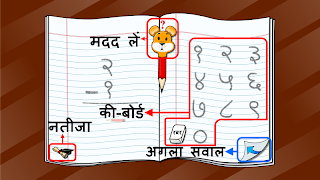 मदद लें
?
२
-१
१ २ ३
४ ५ ६
७ ८ ९
०
की-बोर्ड
नतीजा
अगला सवाल